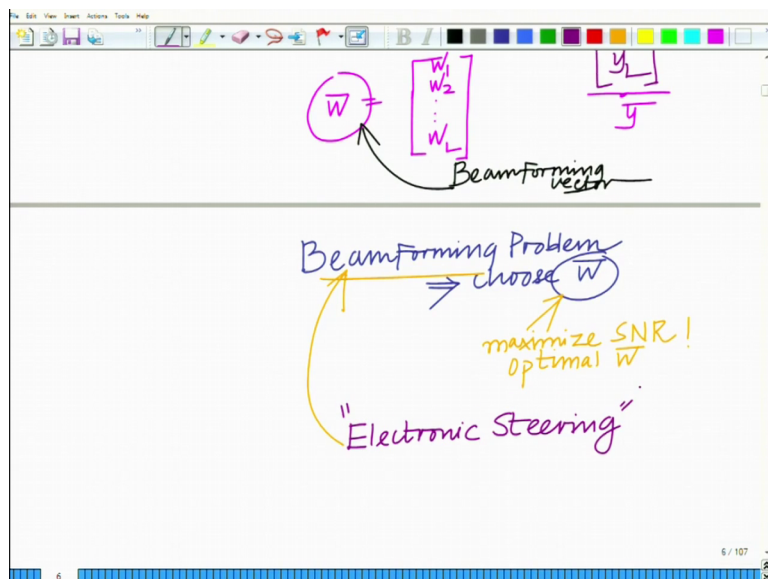 File Edit View Insert Actions Tools Help
B I
W̄ = [ W1
W2
⋮
WL ]
yL
ȳ
BeamForming
vector
BeamForming Problem
⇒ choose W̄
maximize SNR!
optimal W̄
"Electronic Steering"
6 / 107
6